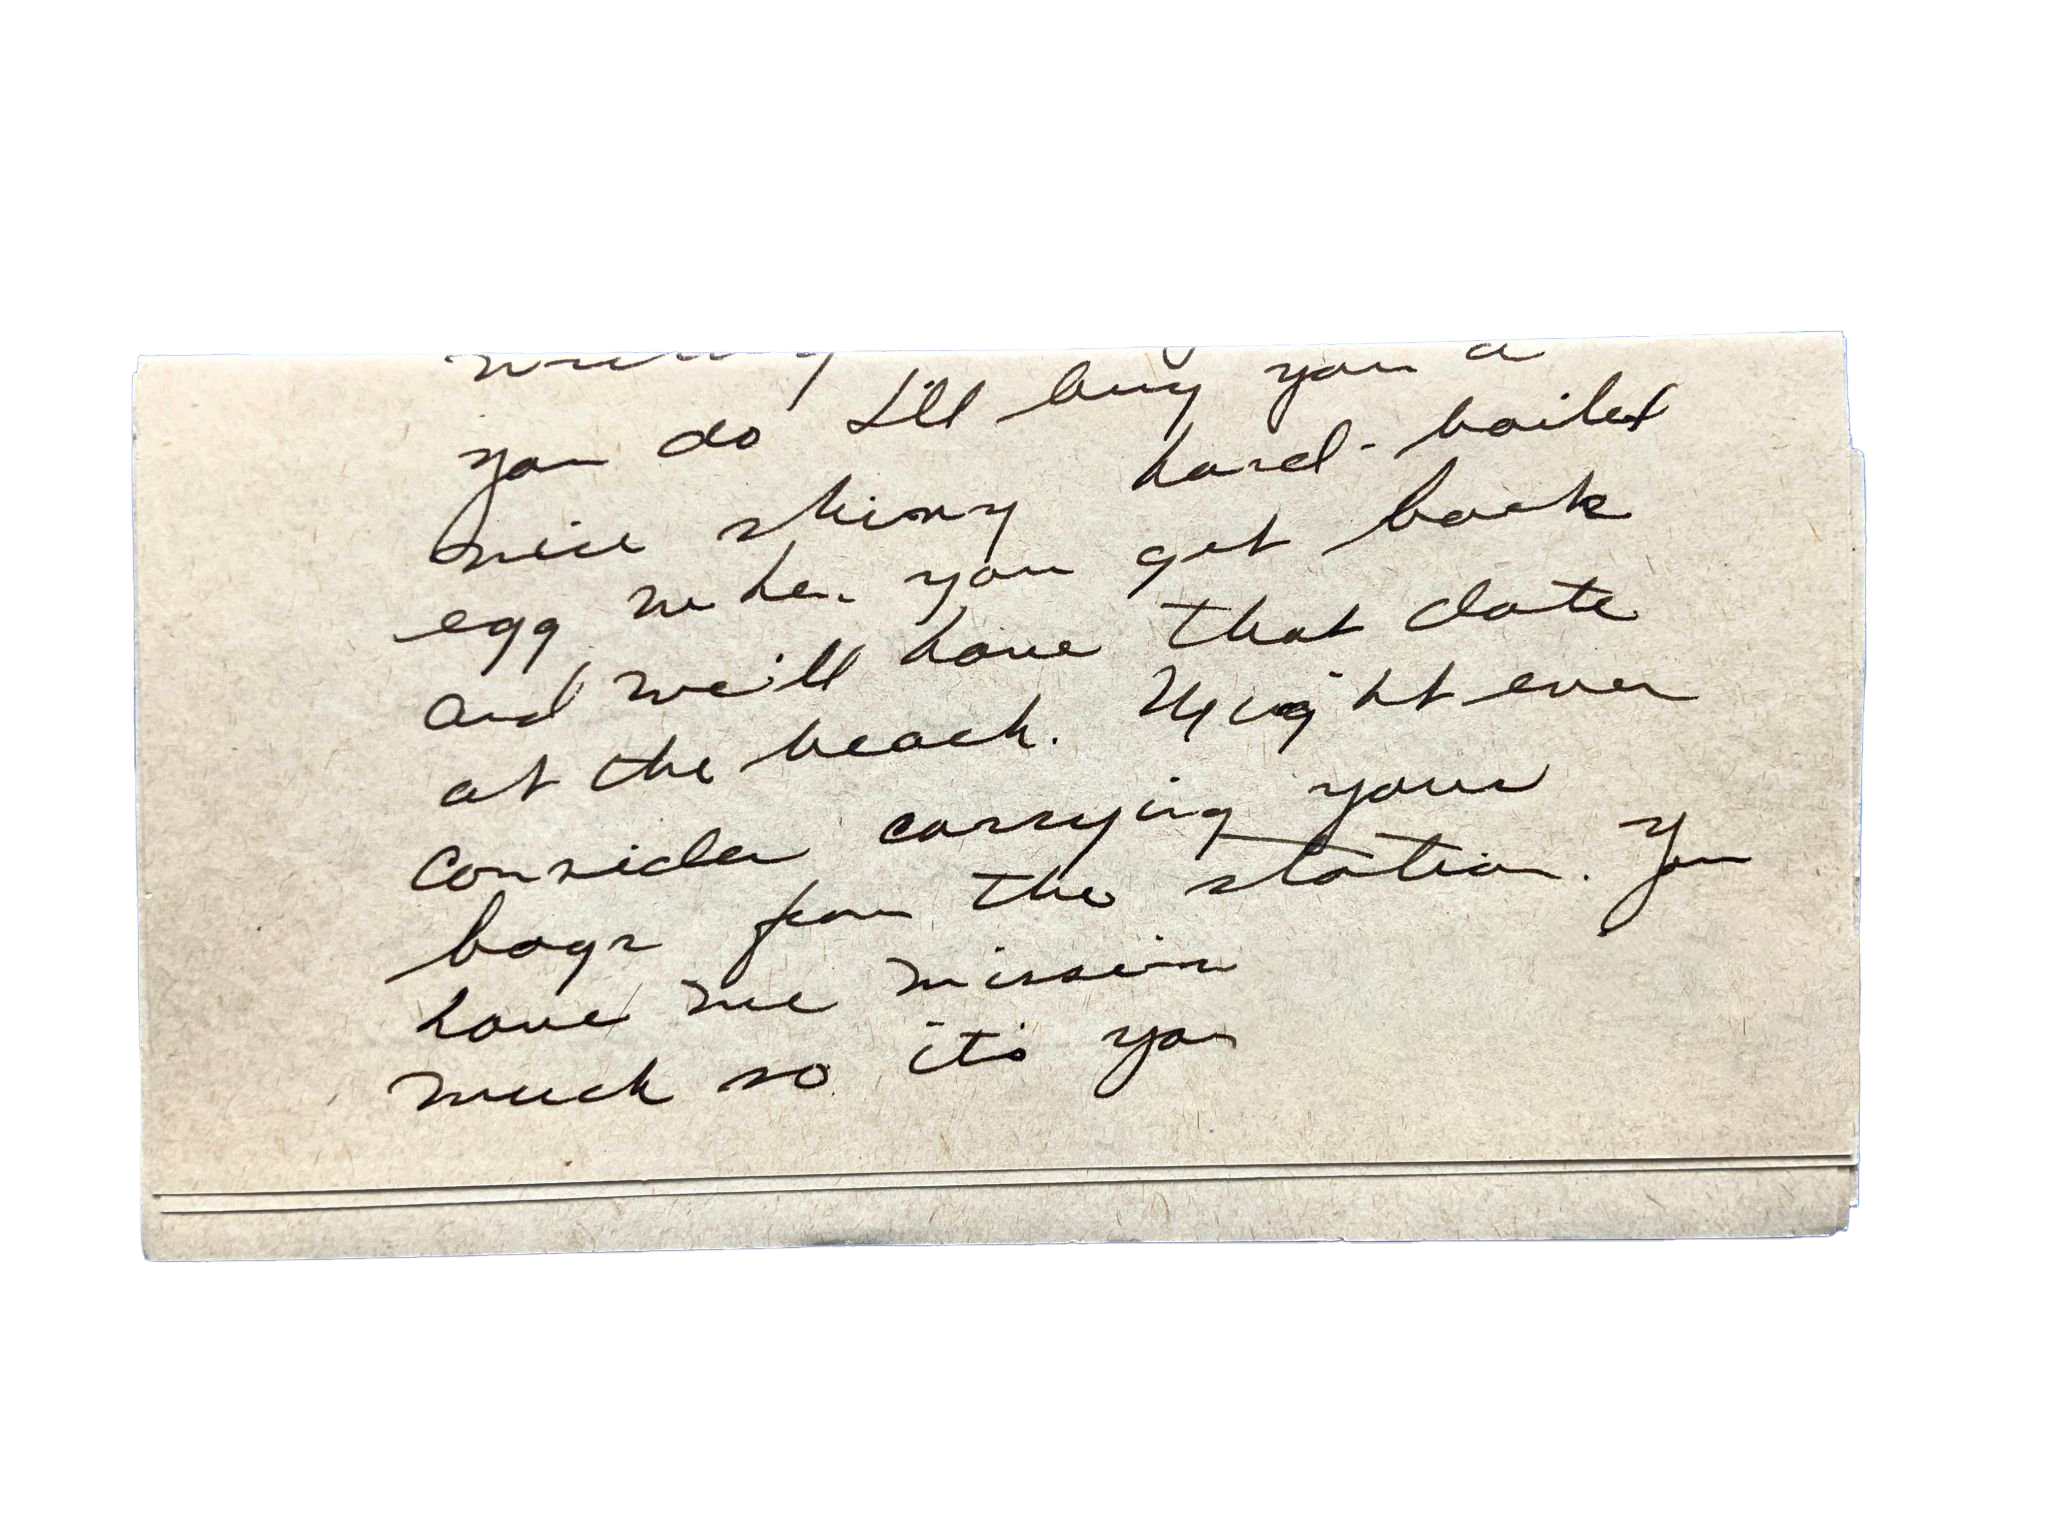 you do I'll buy you a
nice shiny hard-boiled
egg when you get back
and we'll have that date
at the beach. Might even
consider carrying your
bags from the station. You
have me missin
much so it's you